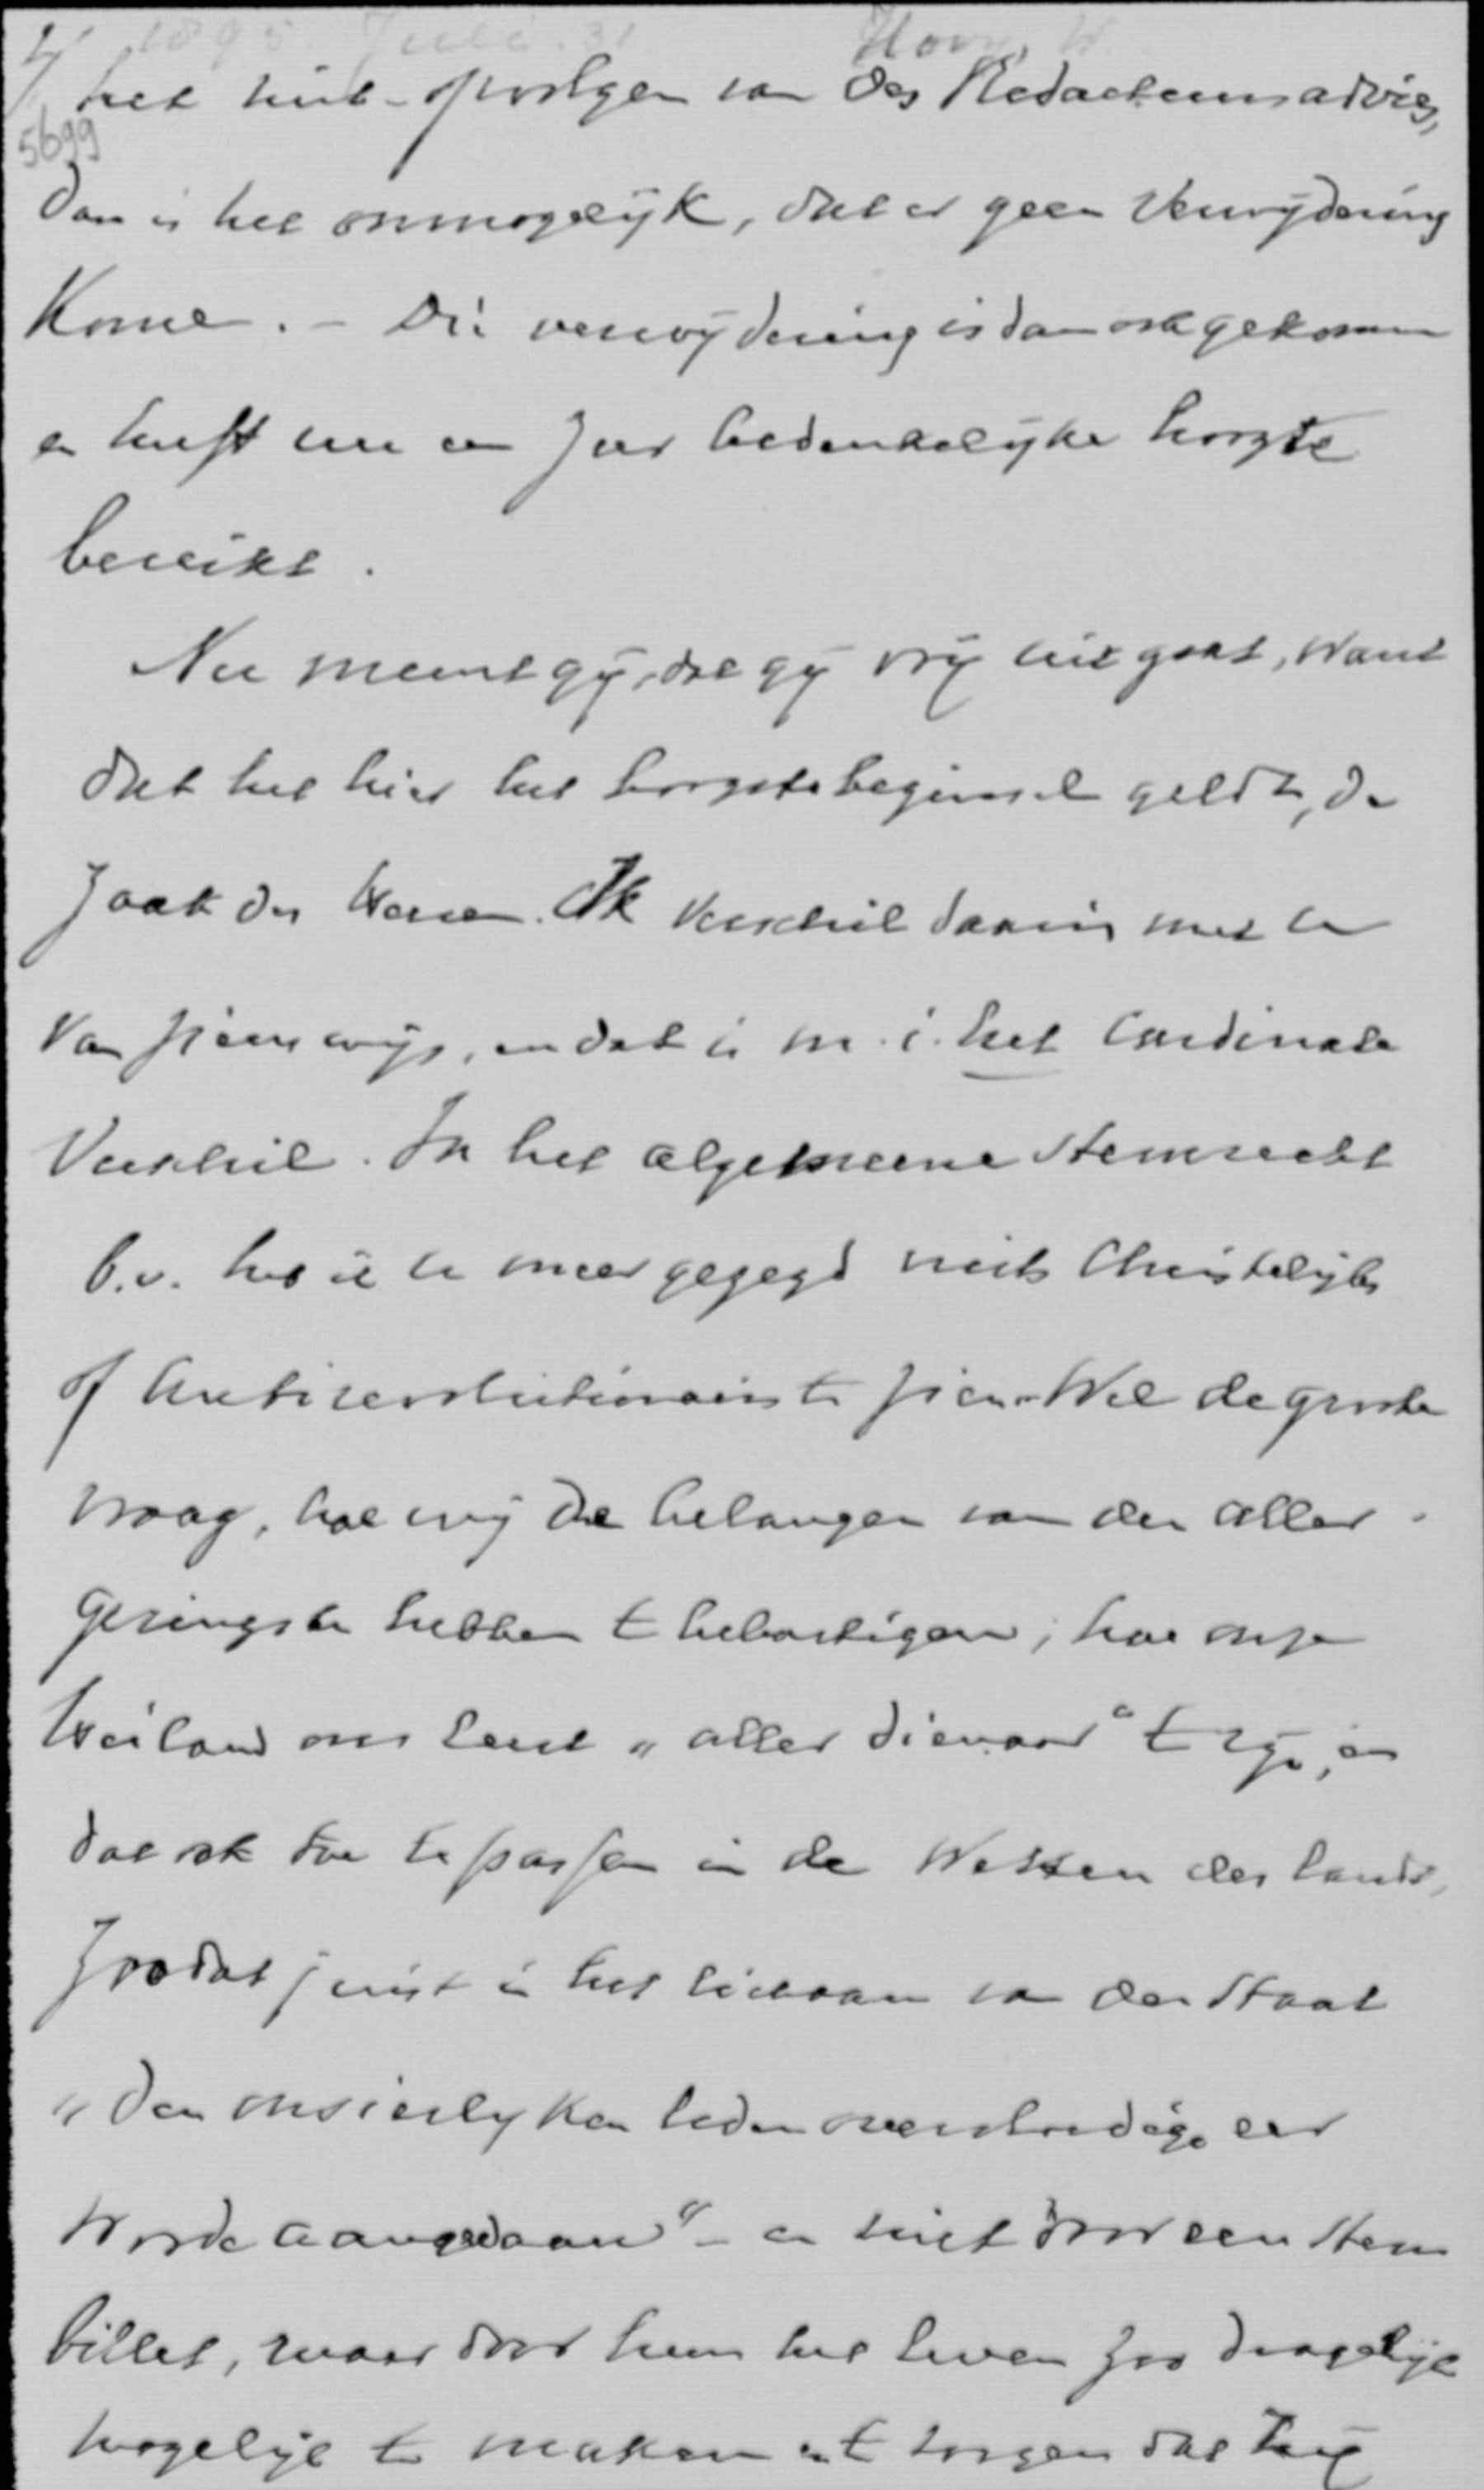 2/ 1895 Juli. 31 Hovy, W.
het niet-opvolgen van des Redacteurs advies,
5699
dan is het onmogelijk, dat er geen verwydering
kome. - Die verwydering is dan ook gekomen
en heeft nu een zeer bedenkelyke hoogte
bereikt.
Nu meent gy, dat gy vry uit gaat, want
dat het hier het hoogste beginsel geldt, de
zaak des Heeren. Ik verschil daarin met u
van zienswijs, en dat is m.i. het Cardinale
Verschil. In het algemeene stemrecht
b.v. heb ik u meer gezegd niets Christelijks
of Antirevolutionairs te zien. Wel de groote
vraag, hoe wij de belangen van den aller-
geringste hebben te behartigen; hoe onze
Heiland ons leert „aller dienaar" te zijn, en
dat ook toe te passen in de Wetten des lands,
zoodat juist in het lichaam van den Staat
„den onsierlyken leden overvloediger eer
worde aangedaan" - en niet door een stem
billet, maar door hem het leven zoo dragelijk
mogelijk te maken en te zorgen dat hij